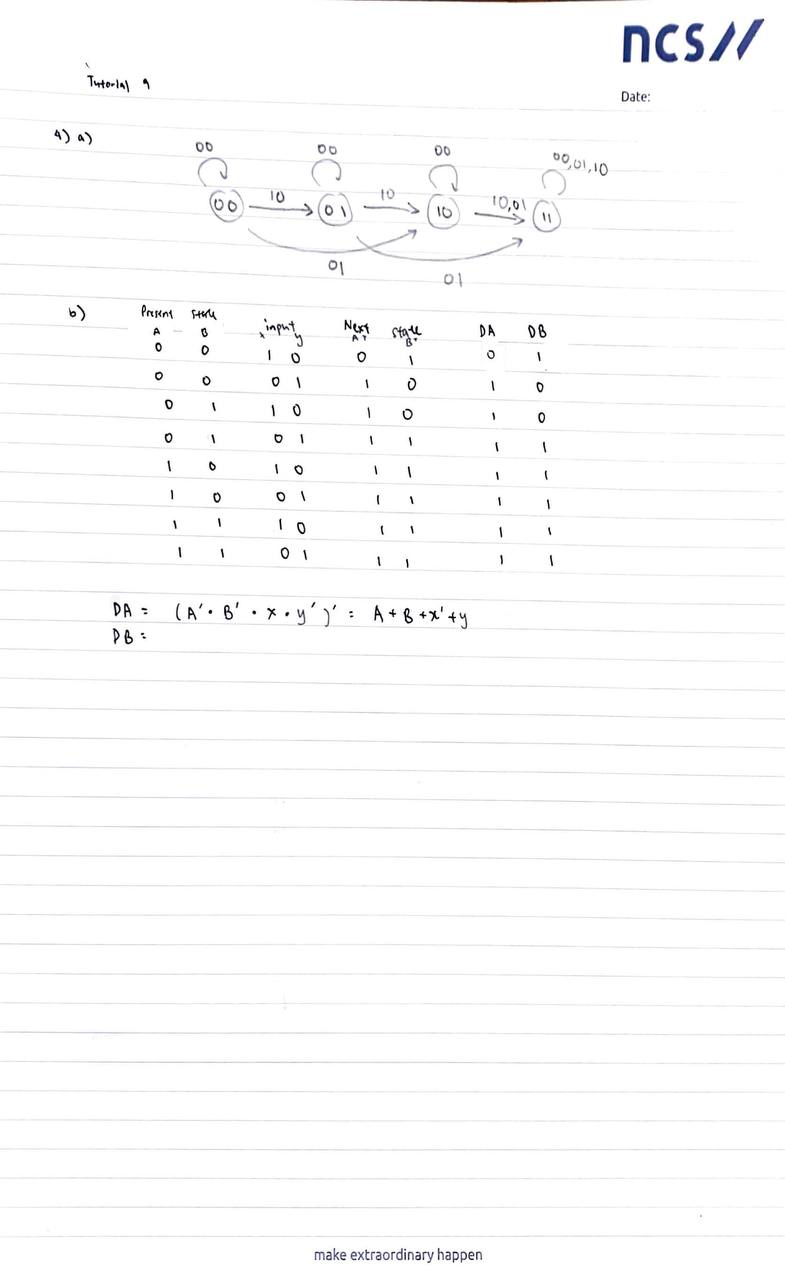 ncs//
Tutorial 9
Date:
4) a)
00 00 00 00,01,10
00 10 01 10 10 10,01 11
01 01
b) Present State input Next State DA DB
A B x y A+ B+
0 0 1 0 0 1 0 1
0 0 0 1 1 0 1 0
0 1 1 0 1 0 1 0
0 1 0 1 1 1 1 1
1 0 1 0 1 1 1 1
1 0 0 1 1 1 1 1
1 1 1 0 1 1 1 1
1 1 0 1 1 1 1 1
DA = (A'·B'·x·y')' = A+B+x'+y
DB =
make extraordinary happen